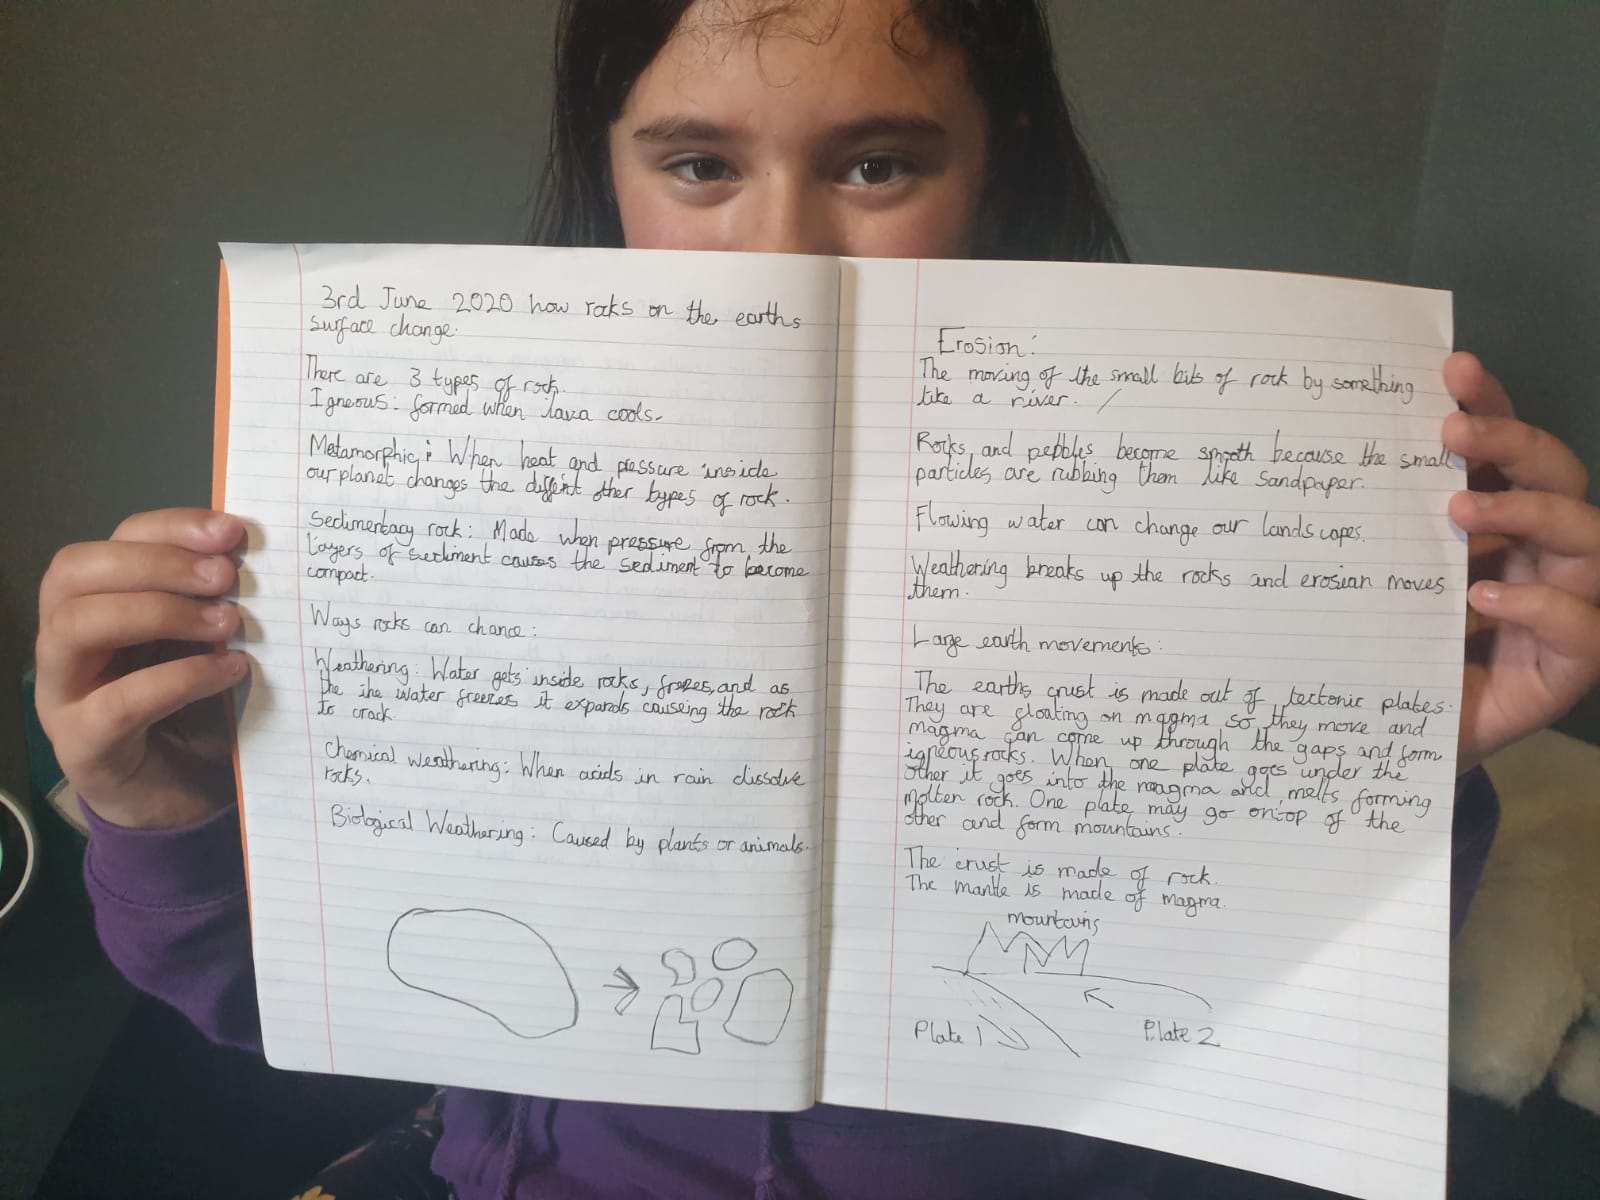 3rd June 2020 how rocks on the earths
surface change.
There are 3 types of rock.
Igneous: formed when lava cools.
Metamorphic: When heat and pressure inside
our planet changes the other types of rock.
Sedimentary rock: Made when pressure from the
layers of sediment causes the sediment to become
compact.
Ways rocks can chance:
Weathering: Water gets inside rocks, frezes, and as
the the water freezes it expands causeing the rock
to crack.
Chemical weathering: When acids in rain dissolve
rocks.
Biological Weathering: Caused by plants or animals.
Erosion:
The moving of the small bits of rock by something
like a river.
Rocks, and pebbles become smooth because the small
particles are rubbing them like sandpaper.
Flowing water can change our landscapes.
Weathering breaks up the rocks and erosian moves
them.
Large earth movements:
The earths crust is made out of tectonic plates.
They are floating on magma so they move and
magma can come up through the gaps and form
igneous rocks. When one plate goes under the
other it goes into the magma and melts forming
molten rock. One plate may go ontop of the
other and form mountains.
The crust is made of rock.
The mantle is made of magma.
mountains
Plate 1
Plate 2